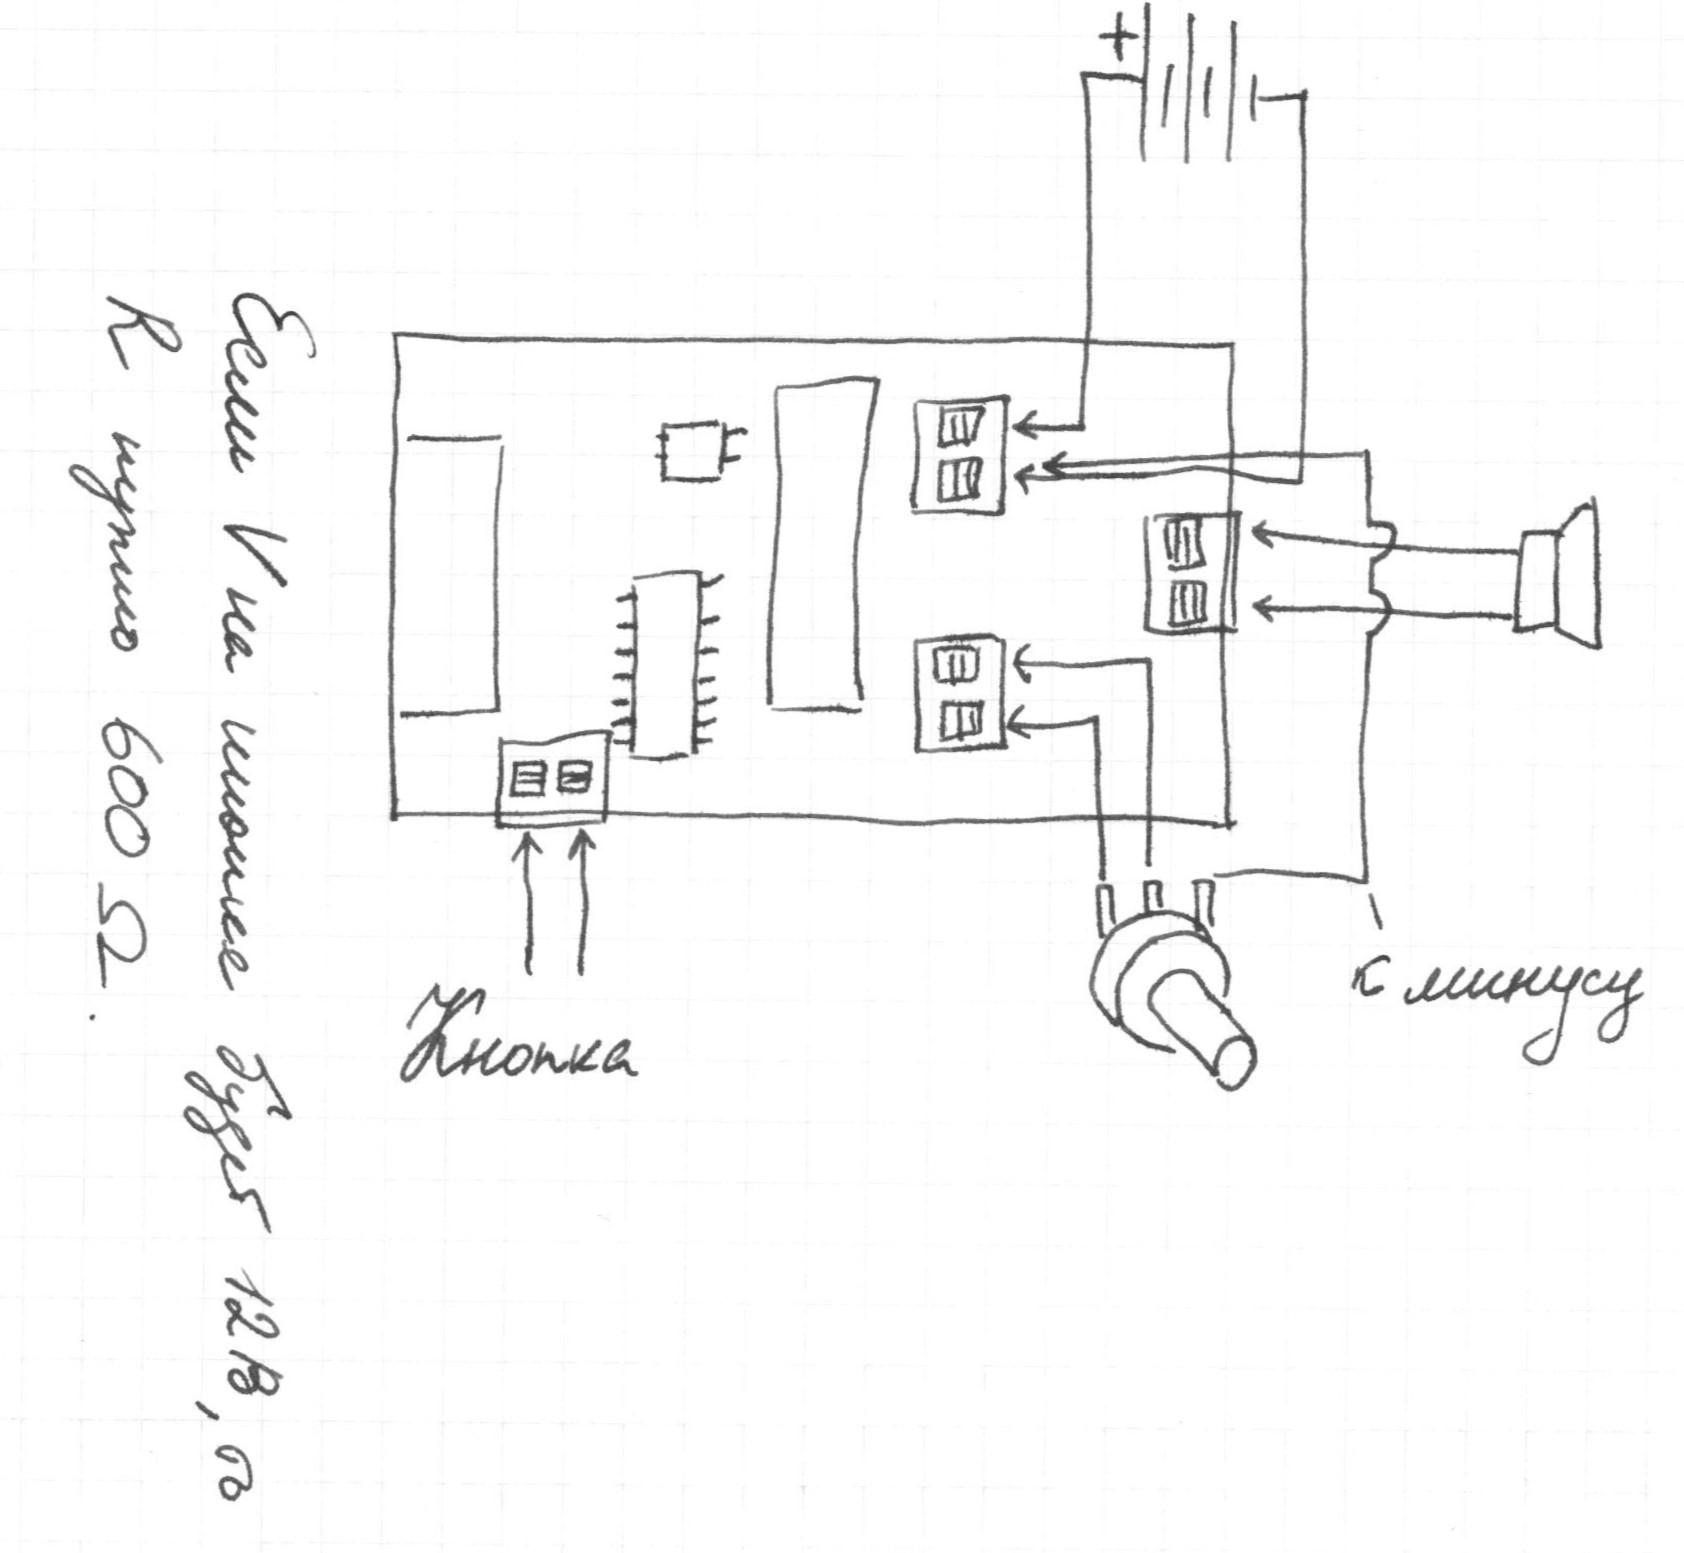 +
Кнопка
к минусу
Если V на школе будет 12В, то
R нужно 600 Ω.